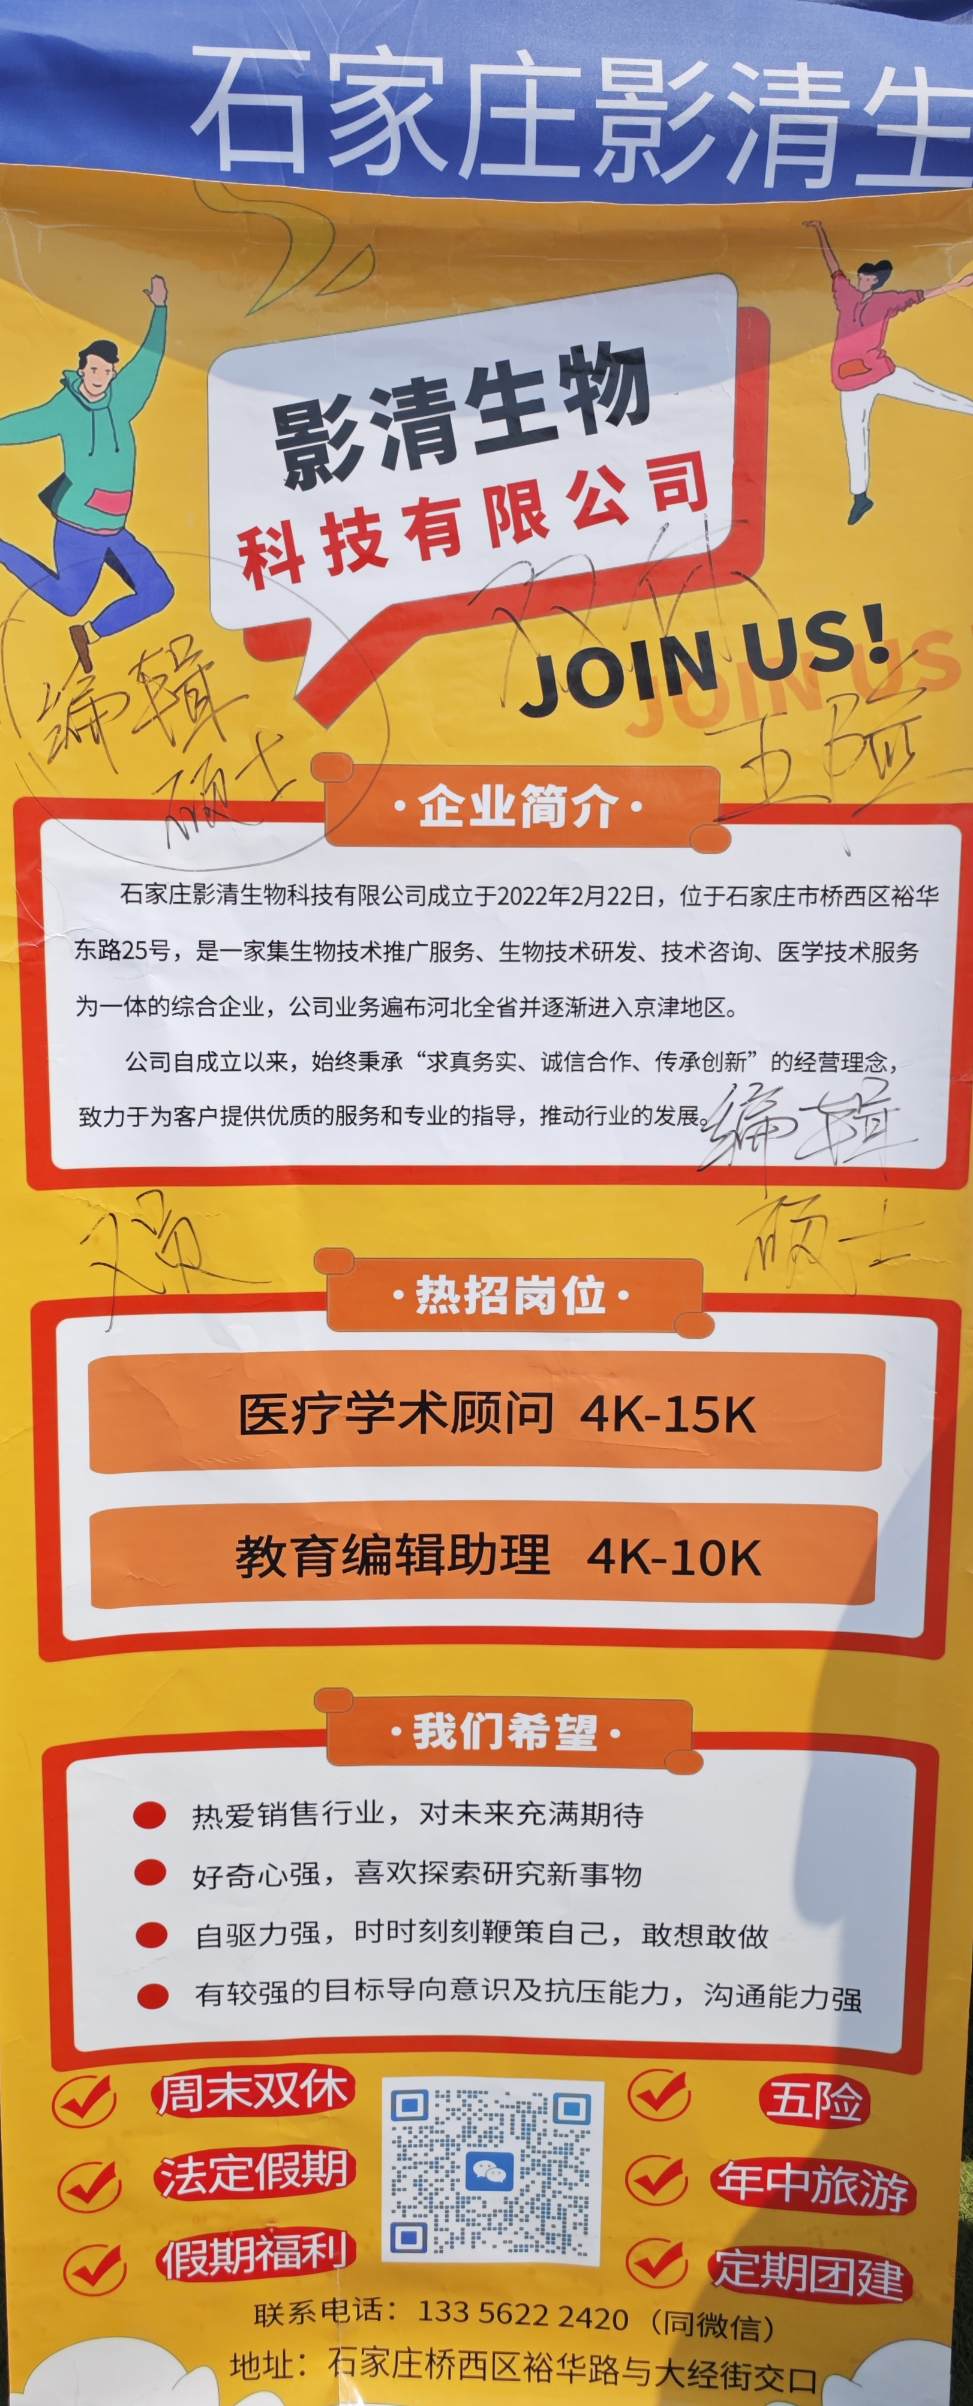 石家庄影清生
影清生物
科技有限公司
双休
JOIN US!
JOIN US
编辑
硕士
五险
·企业简介·
石家庄影清生物科技有限公司成立于2022年2月22日，位于石家庄市桥西区裕华
东路25号，是一家集生物技术推广服务、生物技术研发、技术咨询、医学技术服务
为一体的综合企业，公司业务遍布河北全省并逐渐进入京津地区。
公司自成立以来，始终秉承“求真务实、诚信合作、传承创新”的经营理念，
致力于为客户提供优质的服务和专业的指导，推动行业的发展。
编辑
硕士
·热招岗位·
医疗学术顾问 4K-15K
教育编辑助理 4K-10K
·我们希望·
热爱销售行业，对未来充满期待
好奇心强，喜欢探索研究新事物
自驱力强，时时刻刻鞭策自己，敢想敢做
有较强的目标导向意识及抗压能力，沟通能力强
周末双休
五险
法定假期
年中旅游
假期福利
定期团建
联系电话：133 5622 2420（同微信）
地址：石家庄桥西区裕华路与大经街交口